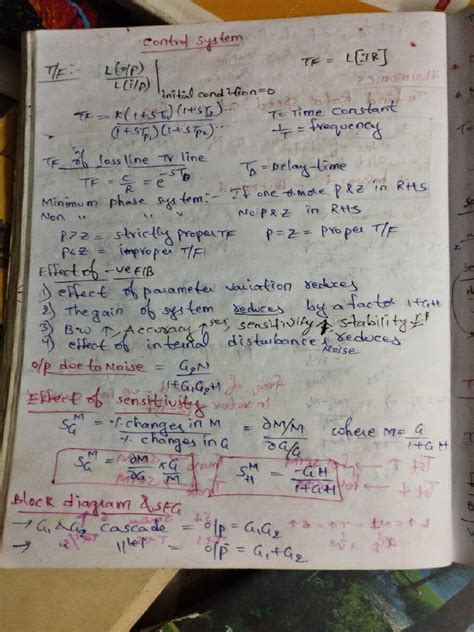 Control System
T/F:- L(o/p) / L(i/p) | initial condition=0    TF = L[IR]
TF = K(1+ST_{z1})(1+ST_{z2})... / (1+ST_{p1})(1+ST_{p2})...
T = Time Constant
1/T = frequency
TF of lossline Tr line    T_D = Delay-time
TF = C/R = e^{-ST_D}
Minimum phase system:- If one or more P & Z in RHS
Non " " No P & Z in RHS
P>Z = strictly proper TF    P=Z = proper T/F
P<Z = improper T/F
Effect of -ve F/B
1) effect of parameter variation reduces
2) The gain of system reduces by a factor 1+GH
3) B.W ↑, Accuracy ↑ses, sensitivity stability
4) effect of internal disturbance reduces
Noise
o/p due to Noise = G_2N / 1+G_1G_2H
Effect of sensitivity
S_G^M = % changes in M / % changes in G = ∂M/M / ∂G/G where M = G / 1+GH
S_G^M = ∂M/∂G × G/M    S_H^M = -GH / 1+GH
Block diagram & SFG
→ G_1 & G_2 cascade = o/p = G_1G_2
→ " 11lel = o/p = G_1+G_2